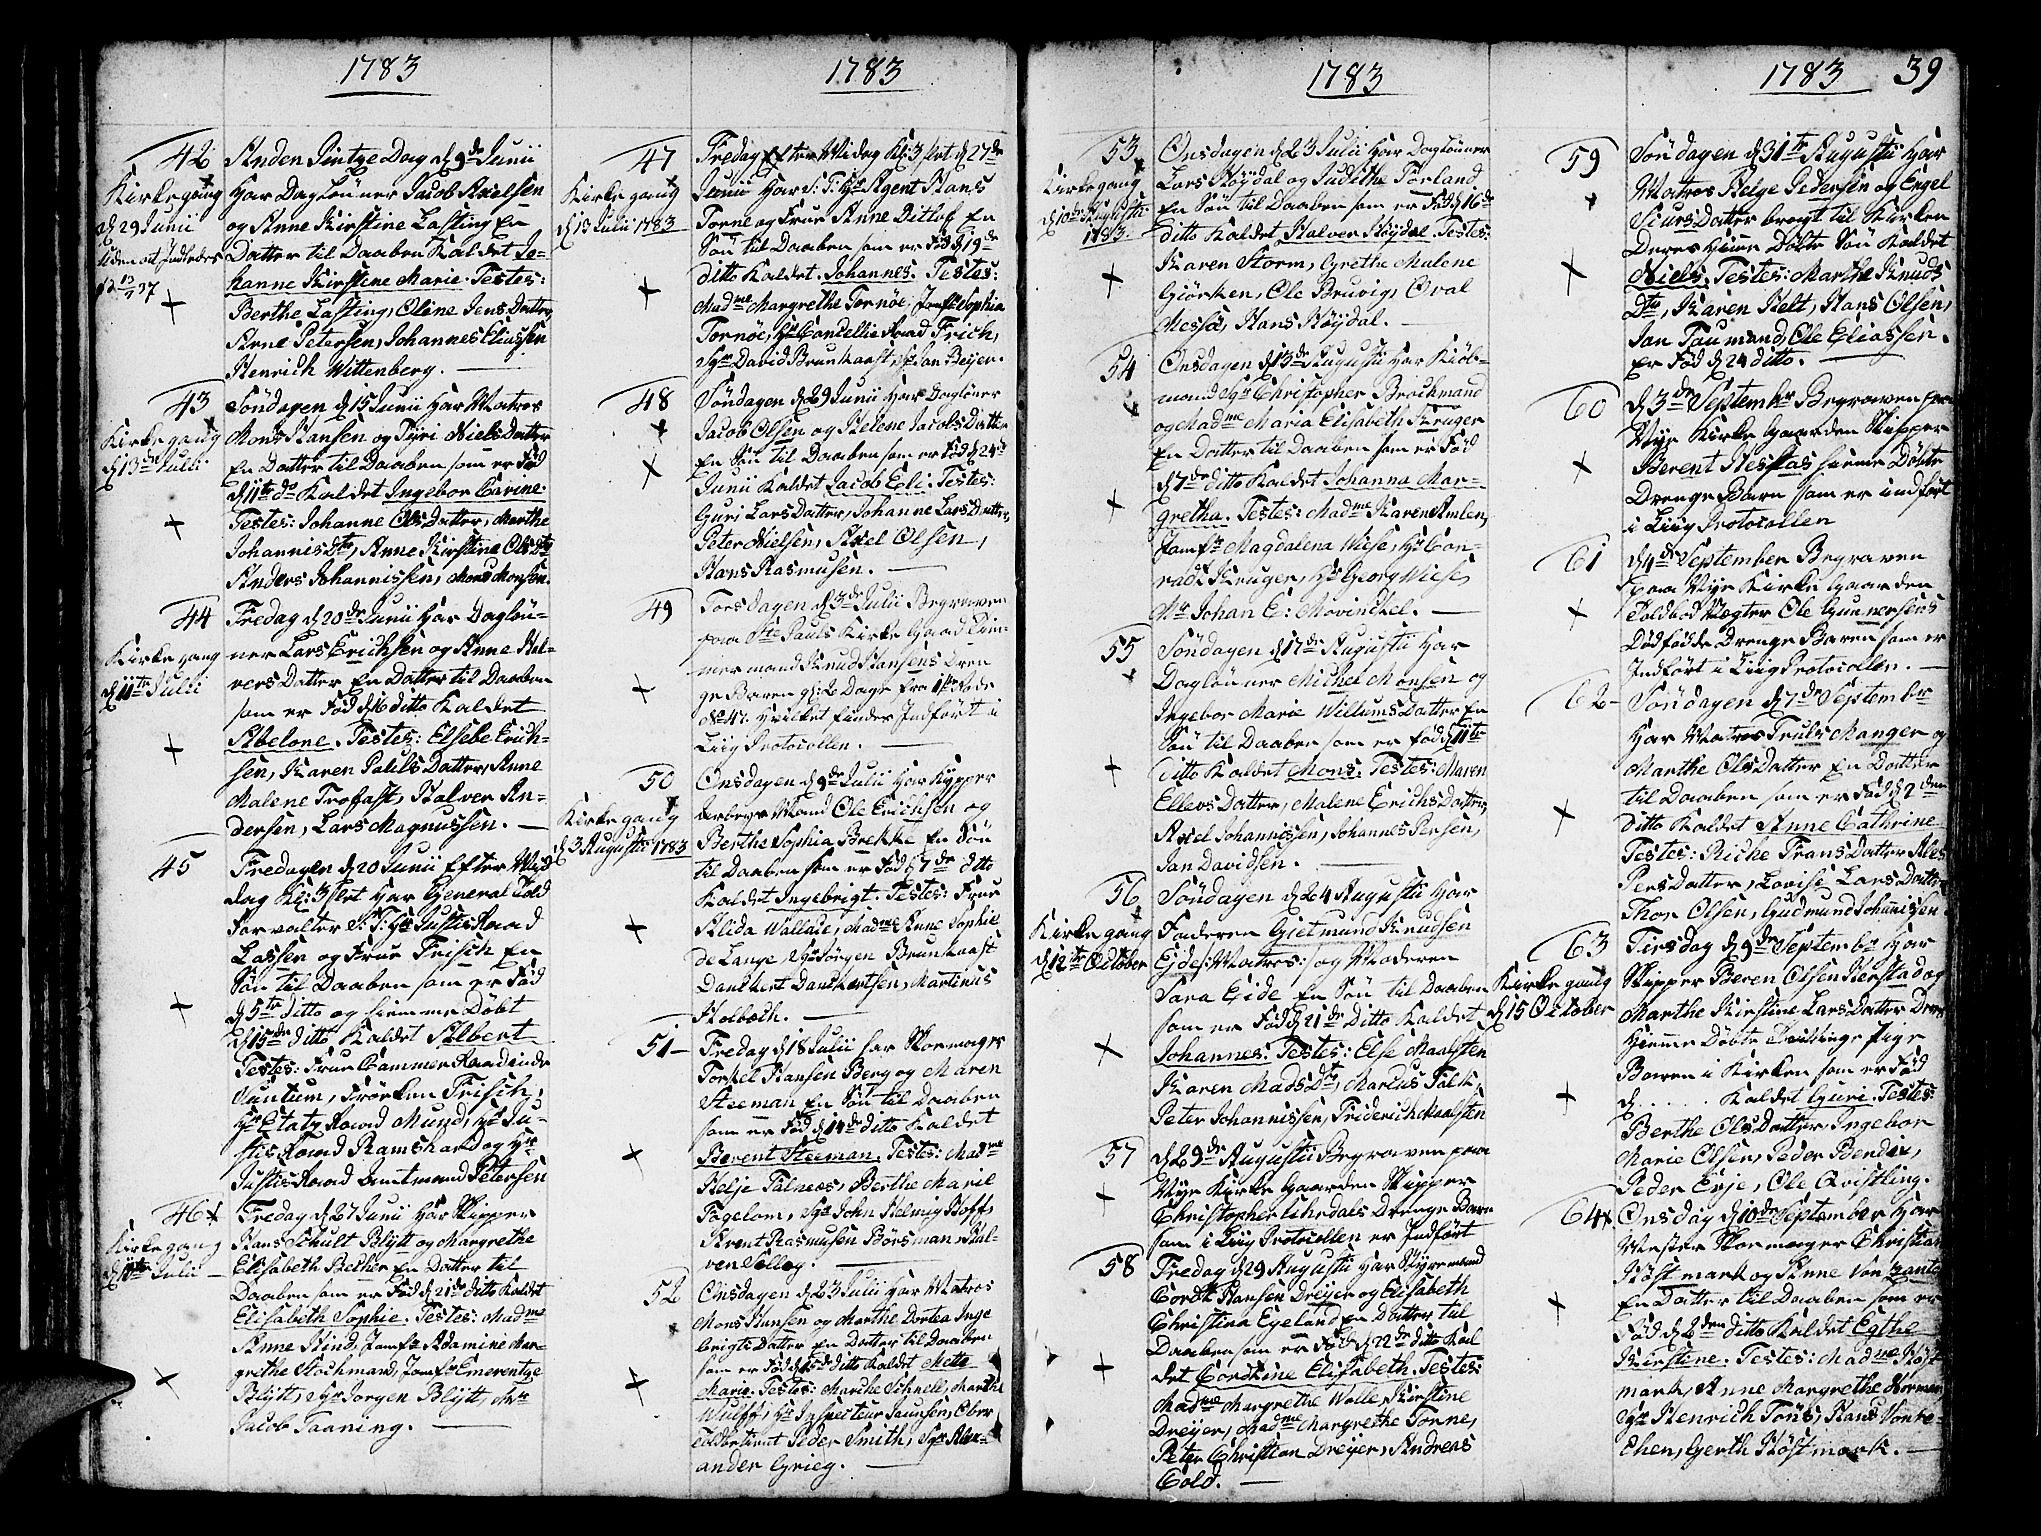 1783
42
Kirkegang
d 29 Junii
Anden Pintze Dag d 9de Junii
Har Daglöuner Jacob Axelsen
og Anne Kirstine Lasting En
Datter til Daaben Kaldet Jo-
hanne Kirstine Marie. Testes:
Berthe Lasting, Oline Jens Datter,
Arne Petersen, Johannes Eliassen
Henrich Wittenberg.
43
Kirkegang
d 13de Julii
Söndagen d 15 Junii Har Matros
Mons Hansen og Gyri Niels Datter
En Datter til Daaben som er Föd
d 11te do Kaldet Ingebor Carine.
Testes: Johanne Ols Datter, Marthe
Johannis Dtr, Anne Kirstine Ols Dtr
Anders Johannissen, Mons Monsen.
44
Kirkegang
d 11te Julii
Fredag d 20de Junii Har Daglöu-
ner Lars Erichsen og Anne Hal-
vers Datter En Datter til Daaben
som er Föd d 16 ditto Kaldet
Abelone. Testes: Elsebe Erich-
sen, Karen Pauls Datter, Anne
Malene Trofast, Halver An-
dersen, Lars Magnussen.
45
Fredagen d 20 Junii Efter Mid
dag Kl: 3 slet Har General Told
Forvalter S: T: Hr Justits Raad
Lassen og Frue Frisch En
Sön til Daaben som er Föd
d 5te ditto og hiemme Döbt
d 15de ditto Kaldet Albert
Testes: Frue Cammer Raadinde
Frörken Frisch,
Hr Etatz Raad Mund, Hr Ju-
stis Raad Ramshard og Hr
Justis Raad Amtmand Petersen
46
Kirkegang
d 11te Julii
Fredag d 27 Junii Har Skipper
Hans Schult Blÿtt og Margrethe
Elisabeth Becher En Datter til
Daaben som er Föd d 21de ditto Kaldet
Elisabeth Sophie. Testes: Madme
Anne Hind, Jomfr Adamine Mar-
grethe Stochmand, Jomfr Emerentze
Blÿtt, Sr Jorgen Blÿtt, Mr
Jacob Taaning.
1783
47
Kirkegang
d 13 Julii 1783
Fredag Efter Midag Kl: 3 slet d 27de
Junii Har S: T: Hr Agent Hans
Torne og Frue Anne Ditlof En
Sön til Daaben som er Föd d 19de
ditto Kaldet Johannes. Testes:
Madme Margrethe Tornöe, Jomfr Sophia
Tornöe, Hr Cancellie Raad Frich,
Sr David Brunkaast, Sr Jan Beyer.
48
Söndagen d 29 Junii Har Daglöner
Jacob Olsen og Helene Jacobs Datter
En Sön til Daaben som er Föd d 24de
Junii Kaldet Jacob Eli. Testes:
Guri Lars Datter, Johanne Lars Datter,
Peter Nielsen, Axel Olsen,
Hans Rasmusen.
49
Torsdagen d 3de Julii Begraven
paa Ste Pauls Kirke Gaard Tim-
mermand Knud Hansens Dren
ge Baren gl: 2 Dage fra
No 47. Hvilket findes Indfört i
Liig Protocollen.
50
Kirkegang
d 3 Augusti 1783
Onsdagen d 9de Julii Har Kypper
Ole Erichsen og
Berthe Sophia Brekke En Sön
til Daaben som er Föd d 7de ditto
Kaldet Ingebrigt. Testes: Frue
Alida Wallace, Madme Anne Sophie
de Lange, Sr Jörgen Brunkaast
Danckert Danckertsen, Martinus
Holboth.
51
Fredag d 18 Julii har Skomager
Torkel Hansen Berg og Maren
Steeman En Sön til Daaben
som er Föd d 14de ditto Kaldet
Berent Steeman. Testes: Madme
Helje Falness, Berthe Marie
Fogelom, Sr John Helmig Hoff,
Arent Rasmusen Börsman, Hal-
ven Solleg.
52
Onsdagen d 23 Julii Har Matros
Mons Hansen og Marthe Dortea Inge
brigts Datter En Datter til Daaben
som er Föd d 15de ditto Kaldet Mette
Marie. Testes: Marthe Schnell, Marthe
Wulff, Hr Inspecteur Jaunsen, Ober
Peder Smith, Sr Alex-
ander Grieg.
1783
53
Kirkegang
d 10de Augusti
1783.
Onsdagen d 23 Julii Har Daglöuner
Lars Höydal og Judithe Torland
En Sön til Daaben som er Föd d 16de
ditto Kaldet Halver Höydal. Testes:
Karen Storm, Grethe Malene
Giörken, Ole Bruvig, Oval
Messö, Hans Höydal.
54
Onsdagen d 13de Augusti Har Kiöb-
mand Sr Christopher Brochmand
og Madme Maria Elisabeth Kruger
En Datter til Daaben som er Föd
d 7de ditto Kaldet Johanna Mar-
gretha. Testes: Madme Karen Amlen,
Jomfr Magdalena Wiese, Hr Con-
rad Kruger, Hr Georg Wiese,
Mr Johan E: Movinckel.
55
Söndagen d 17de Augusti Har
Daglöuner Michel Monsen og
Ingebor Marie Willums Datter En
Sön til Daaben som er Föd d 11te
ditto Kaldet Mons. Testes: Maren
Ellers Datter, Malene Erichs Datter,
Axel Johannissen, Johannes Persen,
Jan Davidsen.
56
Kirkegang
d 12te October
Söndagen d 24 Augusti Har
Faderen Gietmund Knudsen
Eide: Matros: og Moderen
Sara Eide En Sön til Daaben
som er Föd d 21de Ditto Kaldet
Johannes. Testes: Else Maalsten
Karen Mads Dtr, Marcus Falk,
Peter Johannissen, Friderich Maalsten
57
d 29de Augusti Begraven paa
Nye Kirke Gaarden Skipper
Christopher Drenge Barn
som i Liig Protocollen er Indfört
58
Fredag d 29 Augusti Har Styrmand
Cordt Hansen Dreyer og Elisabeth
Christina Egeland En Datter til
Daaben som er Föd d 22de ditto Kal
det Cordtine Elisabeth. Testes:
Madme Margrethe Wolle, Kirstine
Dreyer, Madme Margrethe Torne,
Peter Christian Dreyer, Andreas
Cold.
1783 39
59
Söndagen d 31te Augusti Har
Matros Helge Pedersen og Engel
Siurs Datter bragt til Kirken
Deres Hiemme Döbte Sön Kaldet
Niels. Testes: Marthe Knuds
Dtr, Karen Helt, Hans Olsen,
Jan Taumand, Ole Eliassen.
Er Föd d 24 ditto.
60
d 3de Septembr Begraven paa
Nye Kirke Gaarden Skipper
Berent Hestaas hiemme Döbte
Drenge Barn som er indfört
i Liig Protocollen
61
d 4de September Begraven
paa Nye Kirke Gaarden
Toldbod Vægter Ole Gunnersens
Dödfödde Drenge Baren som er
Indfört i Liig Protocollen.
62
Söndagen d 7de Septembr
Har Matros Truls Manger og
Marthe Ols Datter En Datter
til Daaben som er Föd d 2den
ditto Kaldet Anne Cathrine
Testes: Riche Frans Datter, Ales
Pers Datter, Lovise Lars Datter
Thor Olsen, Gudmund Johannissen
63
Kirkegang
d 15 October
Tirsdag d 9de Septembr Har
Skipper Beren Olsen Kierstad og
Marthe Kirstine Lars Datter Deres
Hiemme Döbte Tvillinge Pige
Baren i Kirken som er Föd
d ...... Kaldet Guri. Testes:
Berthe Ols Datter, Ingebor
Marie Olsen, Peder Bendix,
Peder Erje, Ole Qvistling.
64
Onsdag d 10de September Har
Mester Skomager Christian
Höstmark og Anne Von Zanten
En Datter til Daaben som er
Föd d 2den ditto Kaldet Egthe
Kirstine. Testes: Madme Höst
mark, Anne Margrethe Korner,
Sr Henrich Töns, Hans Vonte-
chen, Gerth Höstmark.